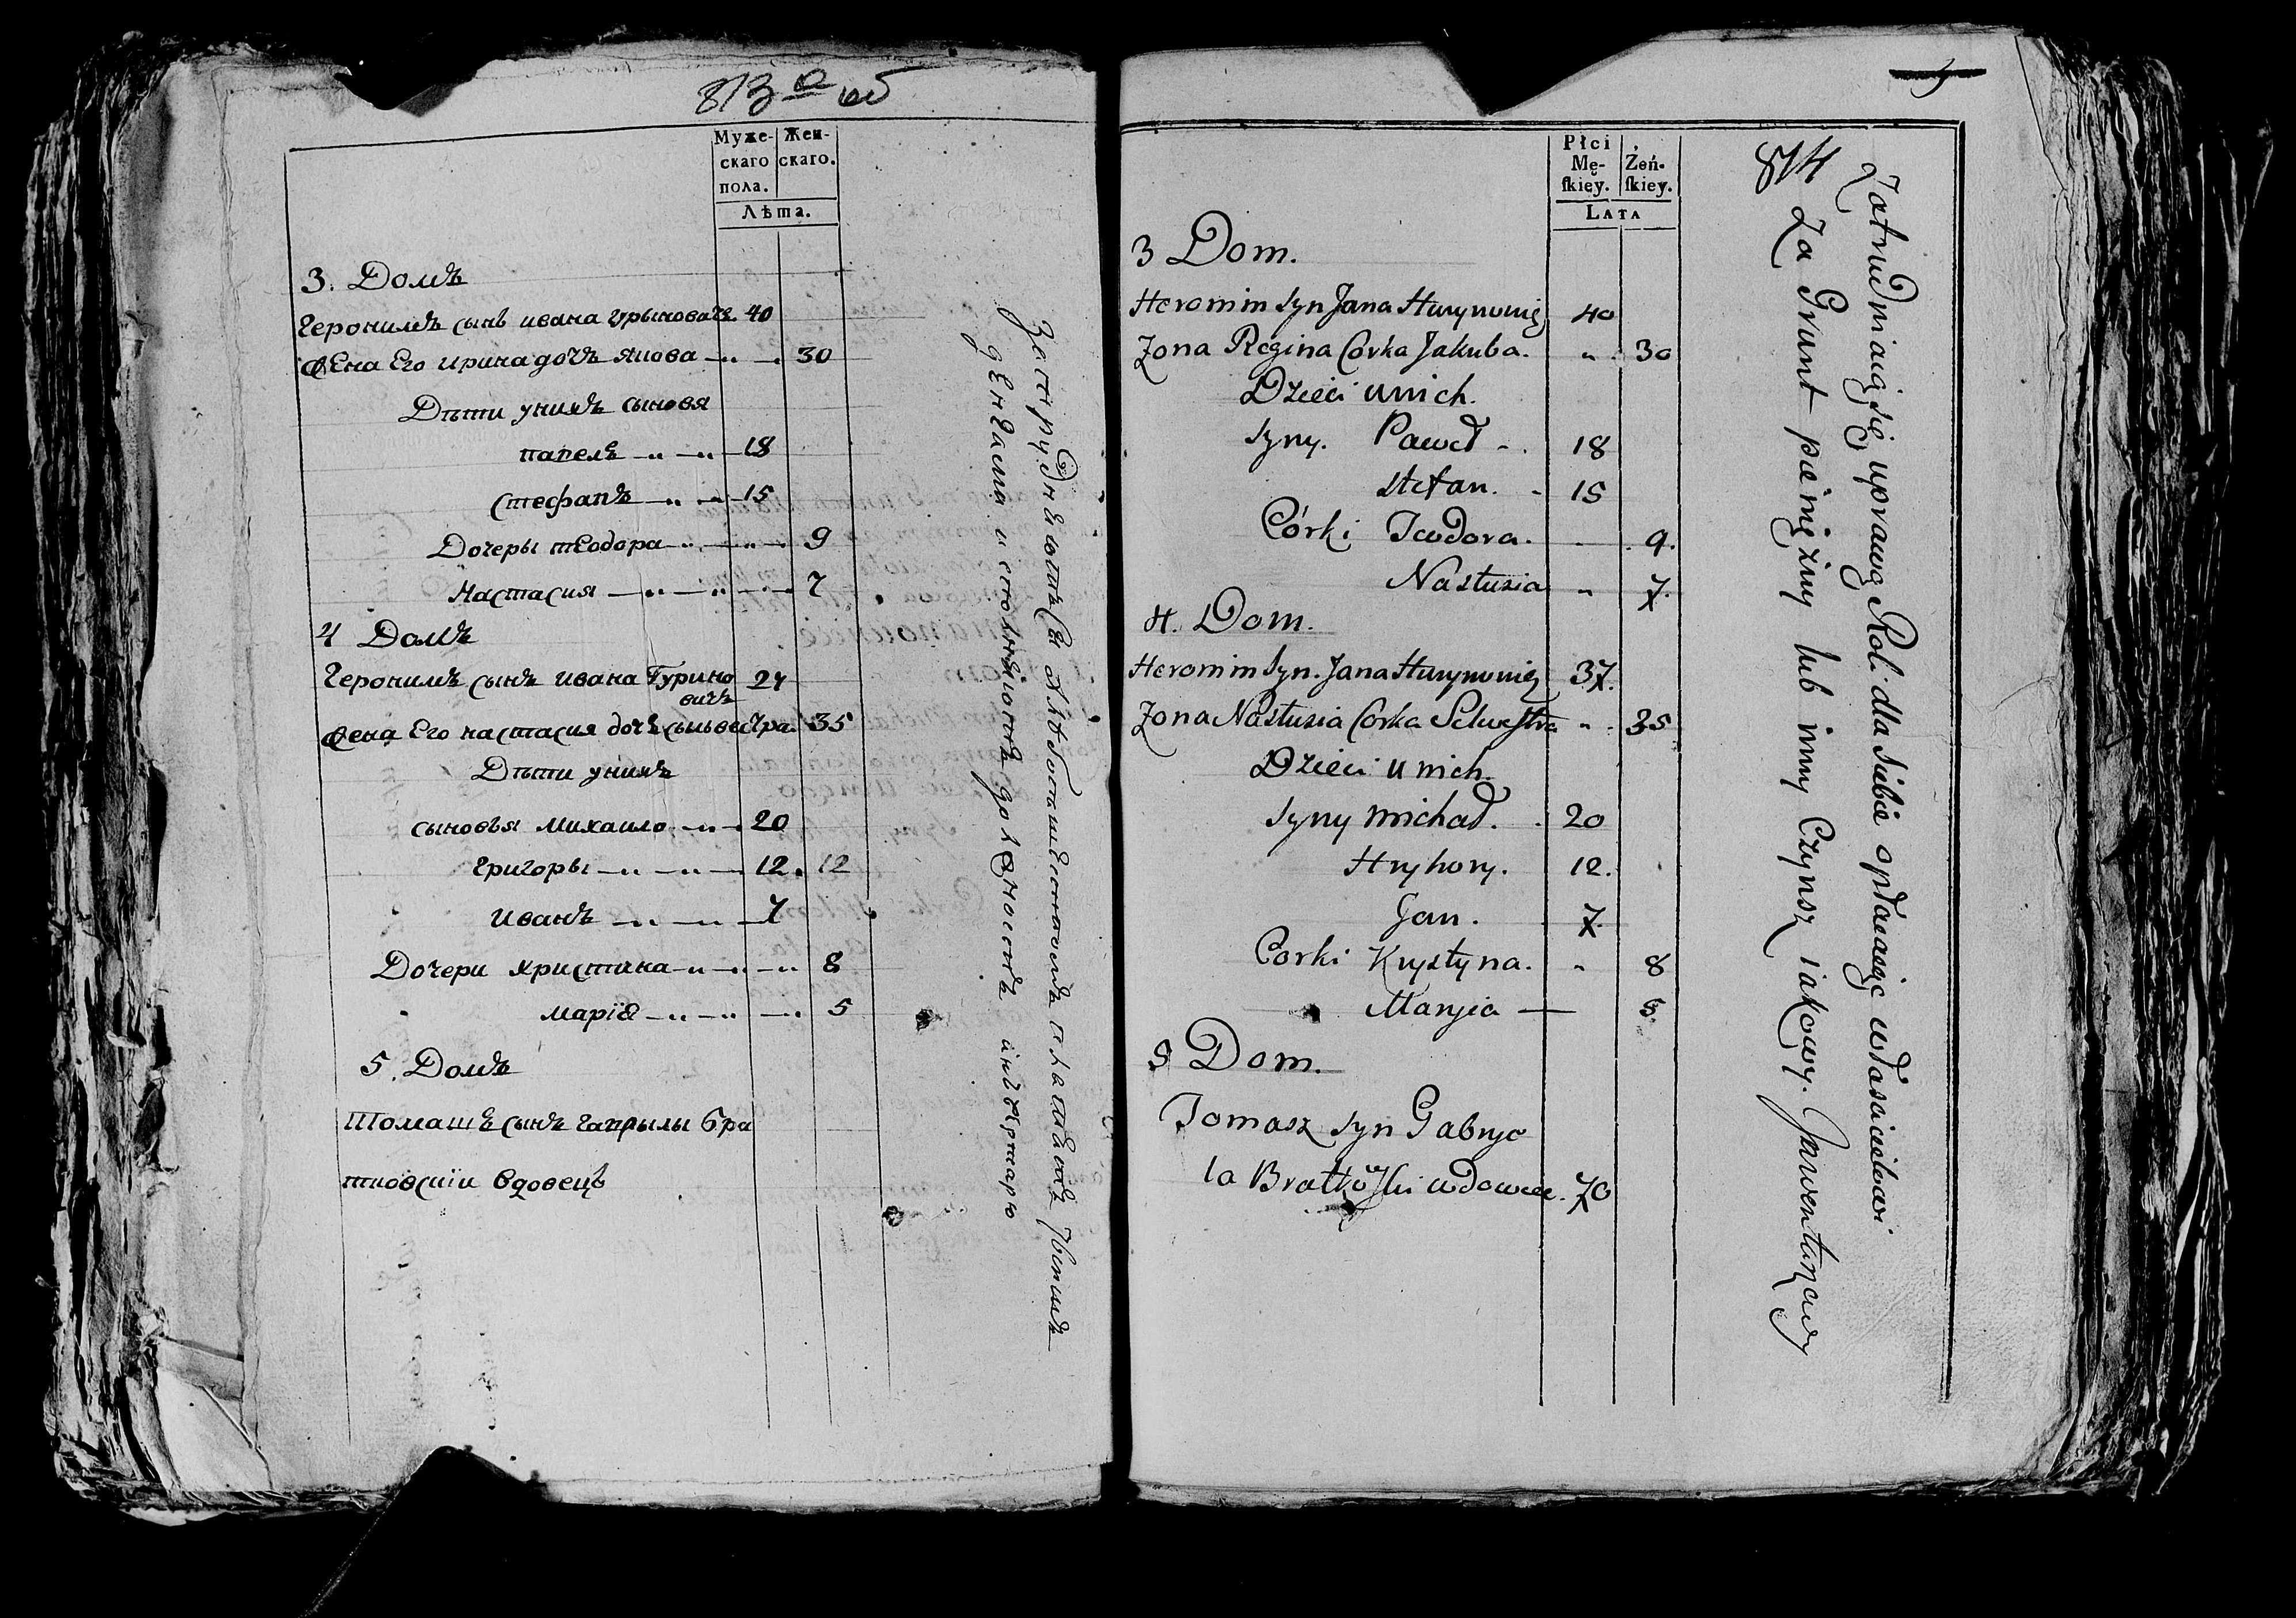 813 а об
Муже- Жен-
скаго скаго.
пола.
Лѣта.
3. Домъ
Геронимъ сынъ ивана гурыновичъ. 40
жена Его ирина дочъ якова 30
Дѣти унихъ сыновя
павелъ 18
Стефанъ 15
Дочеры теодора 9
Настасия 7
4 Домъ
Геронимъ сынъ ивана Гурино 27
вичъ
жена Его настасия дочъ сильвестра 35
Дѣти унихъ
сыновья михаило 20
григоры 12. 12
иванъ 7
Дочери христина 8
марiя 5
5. Домъ
томашъ сынъ гаврилы бра
тковскiи вдовецъ
денгами и
Płci
Mę- Żeń-
ſkiey. ſkiey.
LATA
3 Dom.
Heronim syn Jana Hurynowicz 40
Zona Regina Corka Jakuba. " 30
Dzieci u nich.
Syny. Paweł - . 18
Stefan. - 15
Córki Teodora. 9.
Nastusia " 7.
4. Dom.
Heronim Syn. Jana Hurynowicz 37.
Zona Nastusia Corka Selwestra " 35
Dzieci u nich.
Syny michał. 20
Hryhory. 12.
Jan. 7.
Corki Krystyna. " 8
Maryia — 5.
5 Dom.
Tomasz syn Gabrye
la Bratkowſki wdowiec. 70
814
Zatrudniaią się uprawą Roli dla siebie opłacaiąc właścicielowi
Za Grunt pieniężny lub inny Czynsz iakowy. Jnwentarzowy